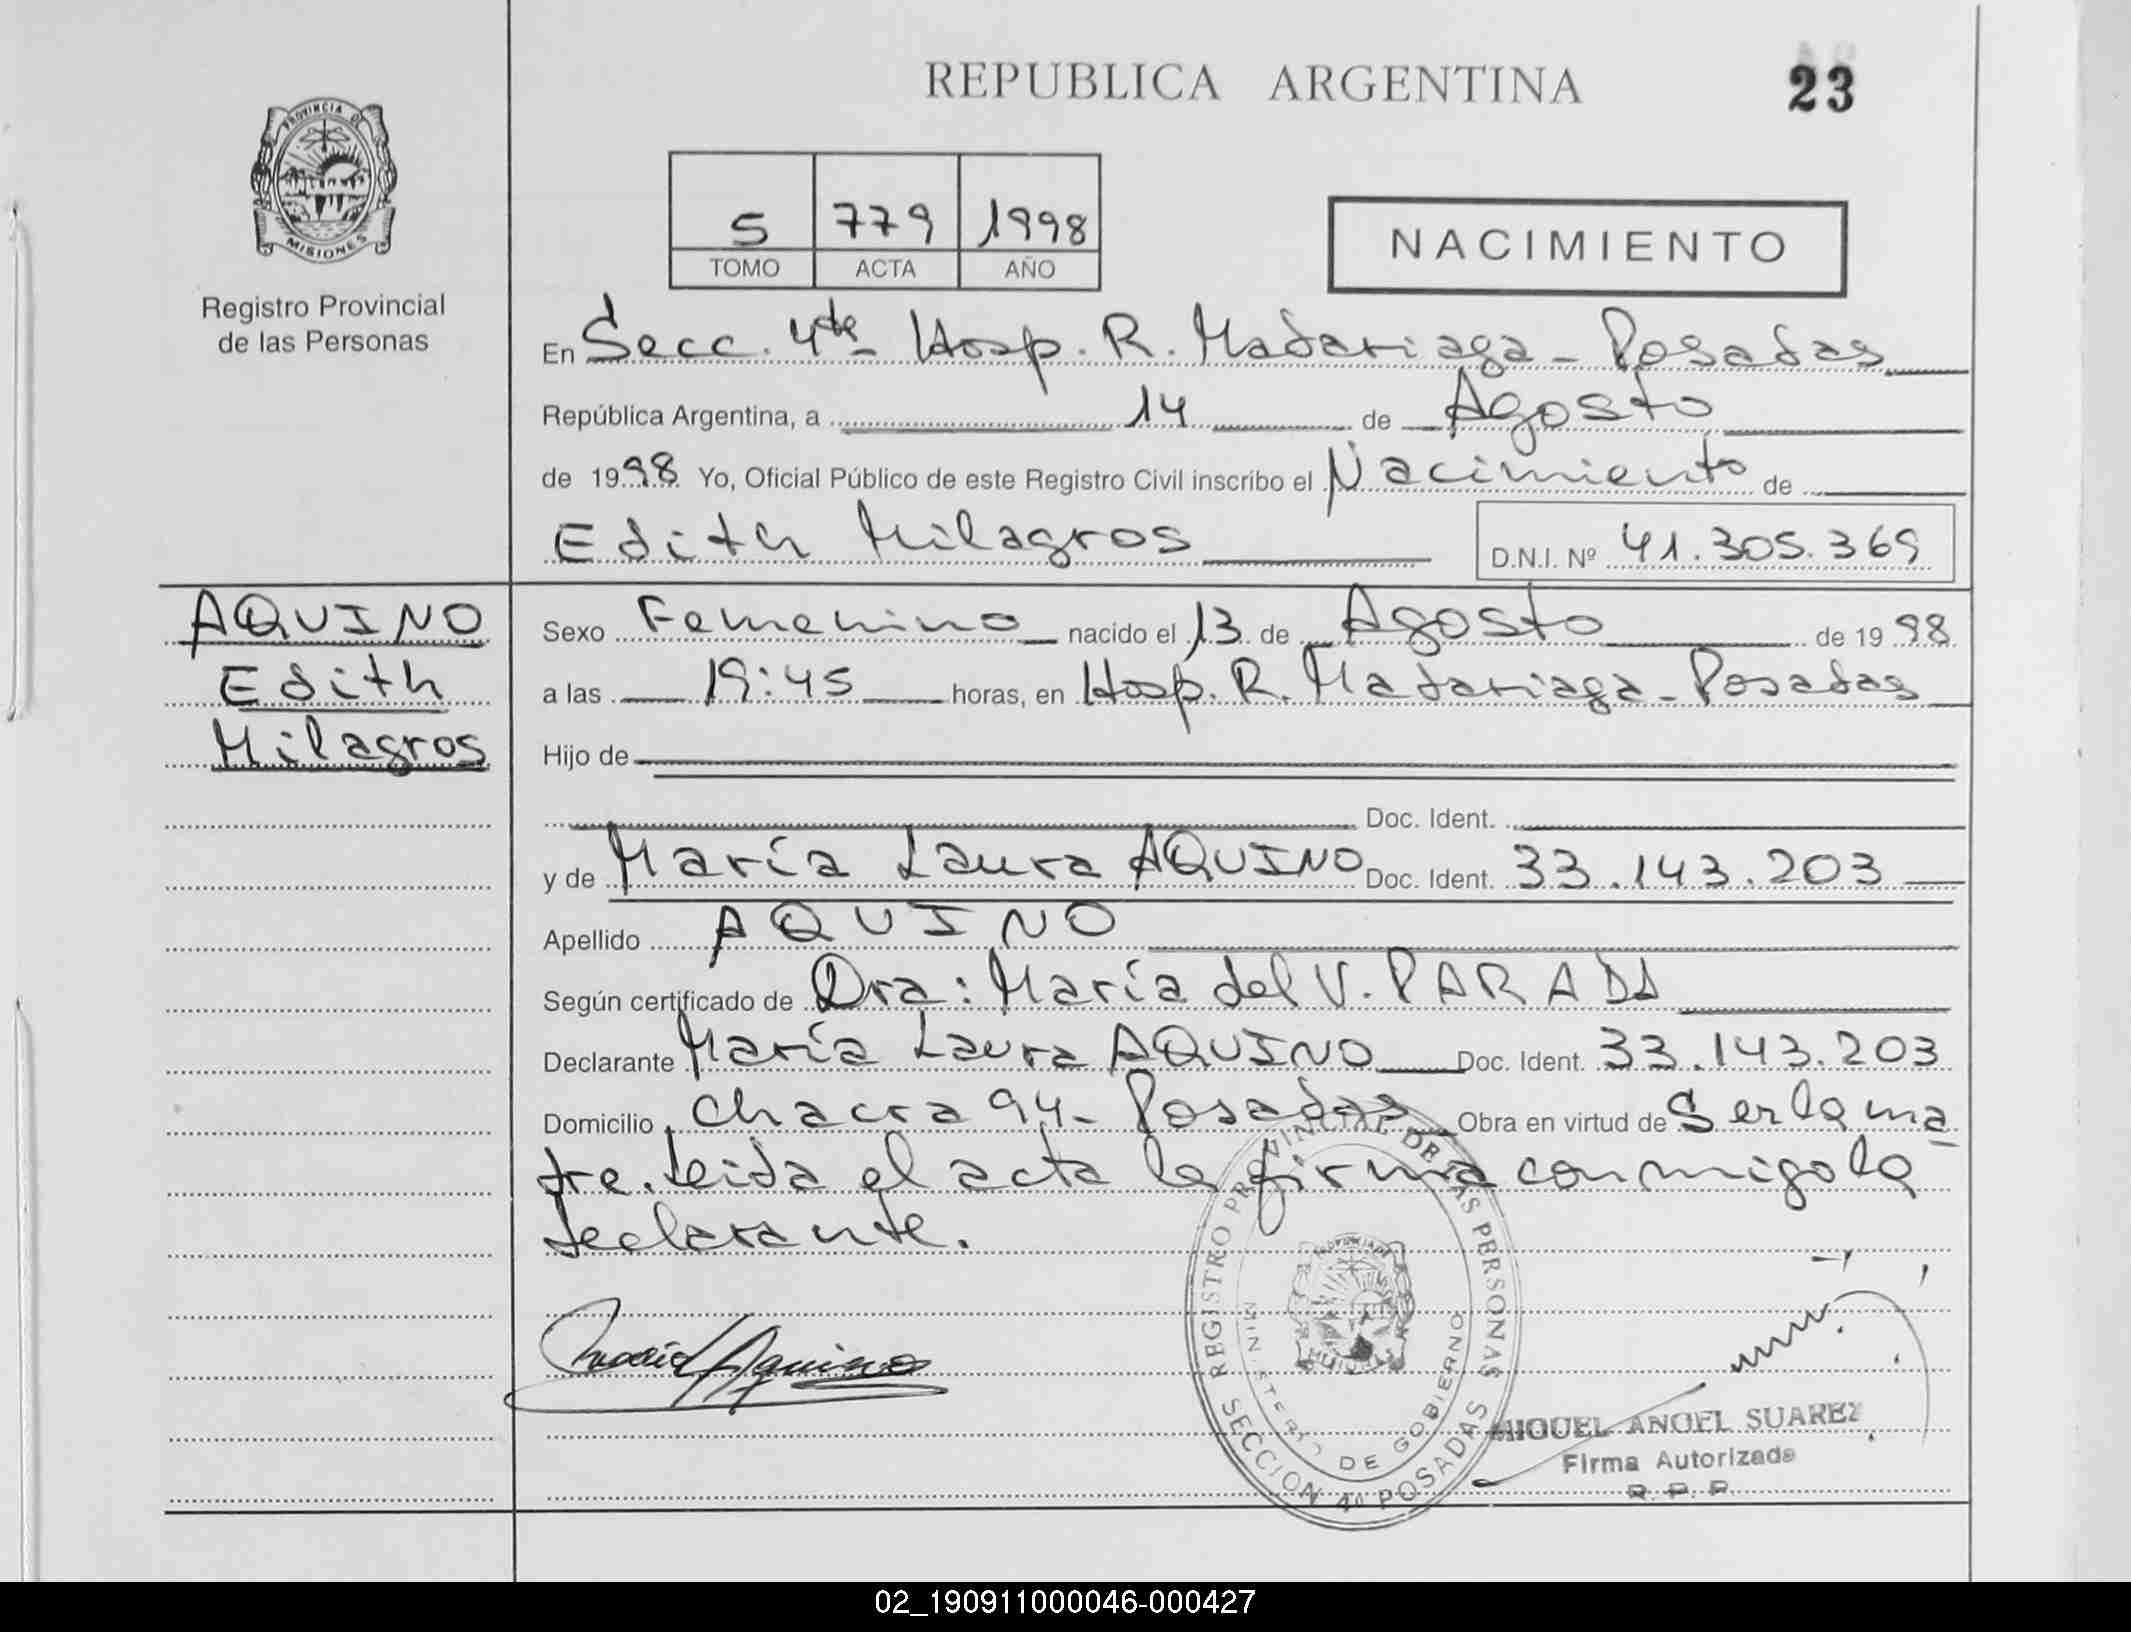 REPUBLICA ARGENTINA
23
PROVINCIA DE
MISIONES
Registro Provincial
de las Personas
5 779 1998
TOMO ACTA AÑO
NACIMIENTO
En Secc. 4ta Hosp. R. Madariaga - Posadas
República Argentina, a 14 de Agosto
de 1998 Yo, Oficial Público de este Registro Civil inscribo el Nacimiento de
Edith Milagros D.N.I. Nº 41.305.369
AQUINO
Edith
Milagros
Sexo Femenino nacido el 13 de Agosto de 1998
a las 19:45 horas, en Hosp. R. Madariaga - Posadas
Hijo de
Doc. Ident.
y de María Laura AQUINO Doc. Ident. 33.143.203
Apellido AQUINO
Según certificado de Dra: María del V. PARADA
Declarante María Laura AQUINO Doc. Ident. 33.143.203
Domicilio chacra 94- Posadas Obra en virtud de Ser la ma
dre. Leida el acta la firma conmigo la
declarante.
María Aquino
REGISTRO PROVINCIAL DE LAS PERSONAS
MINISTERIO DE GOBIERNO
SECCION 4ª POSADAS
MIGUEL ANGEL SUAREZ
Firma Autorizada
R. P. P.
02_190911000046-000427